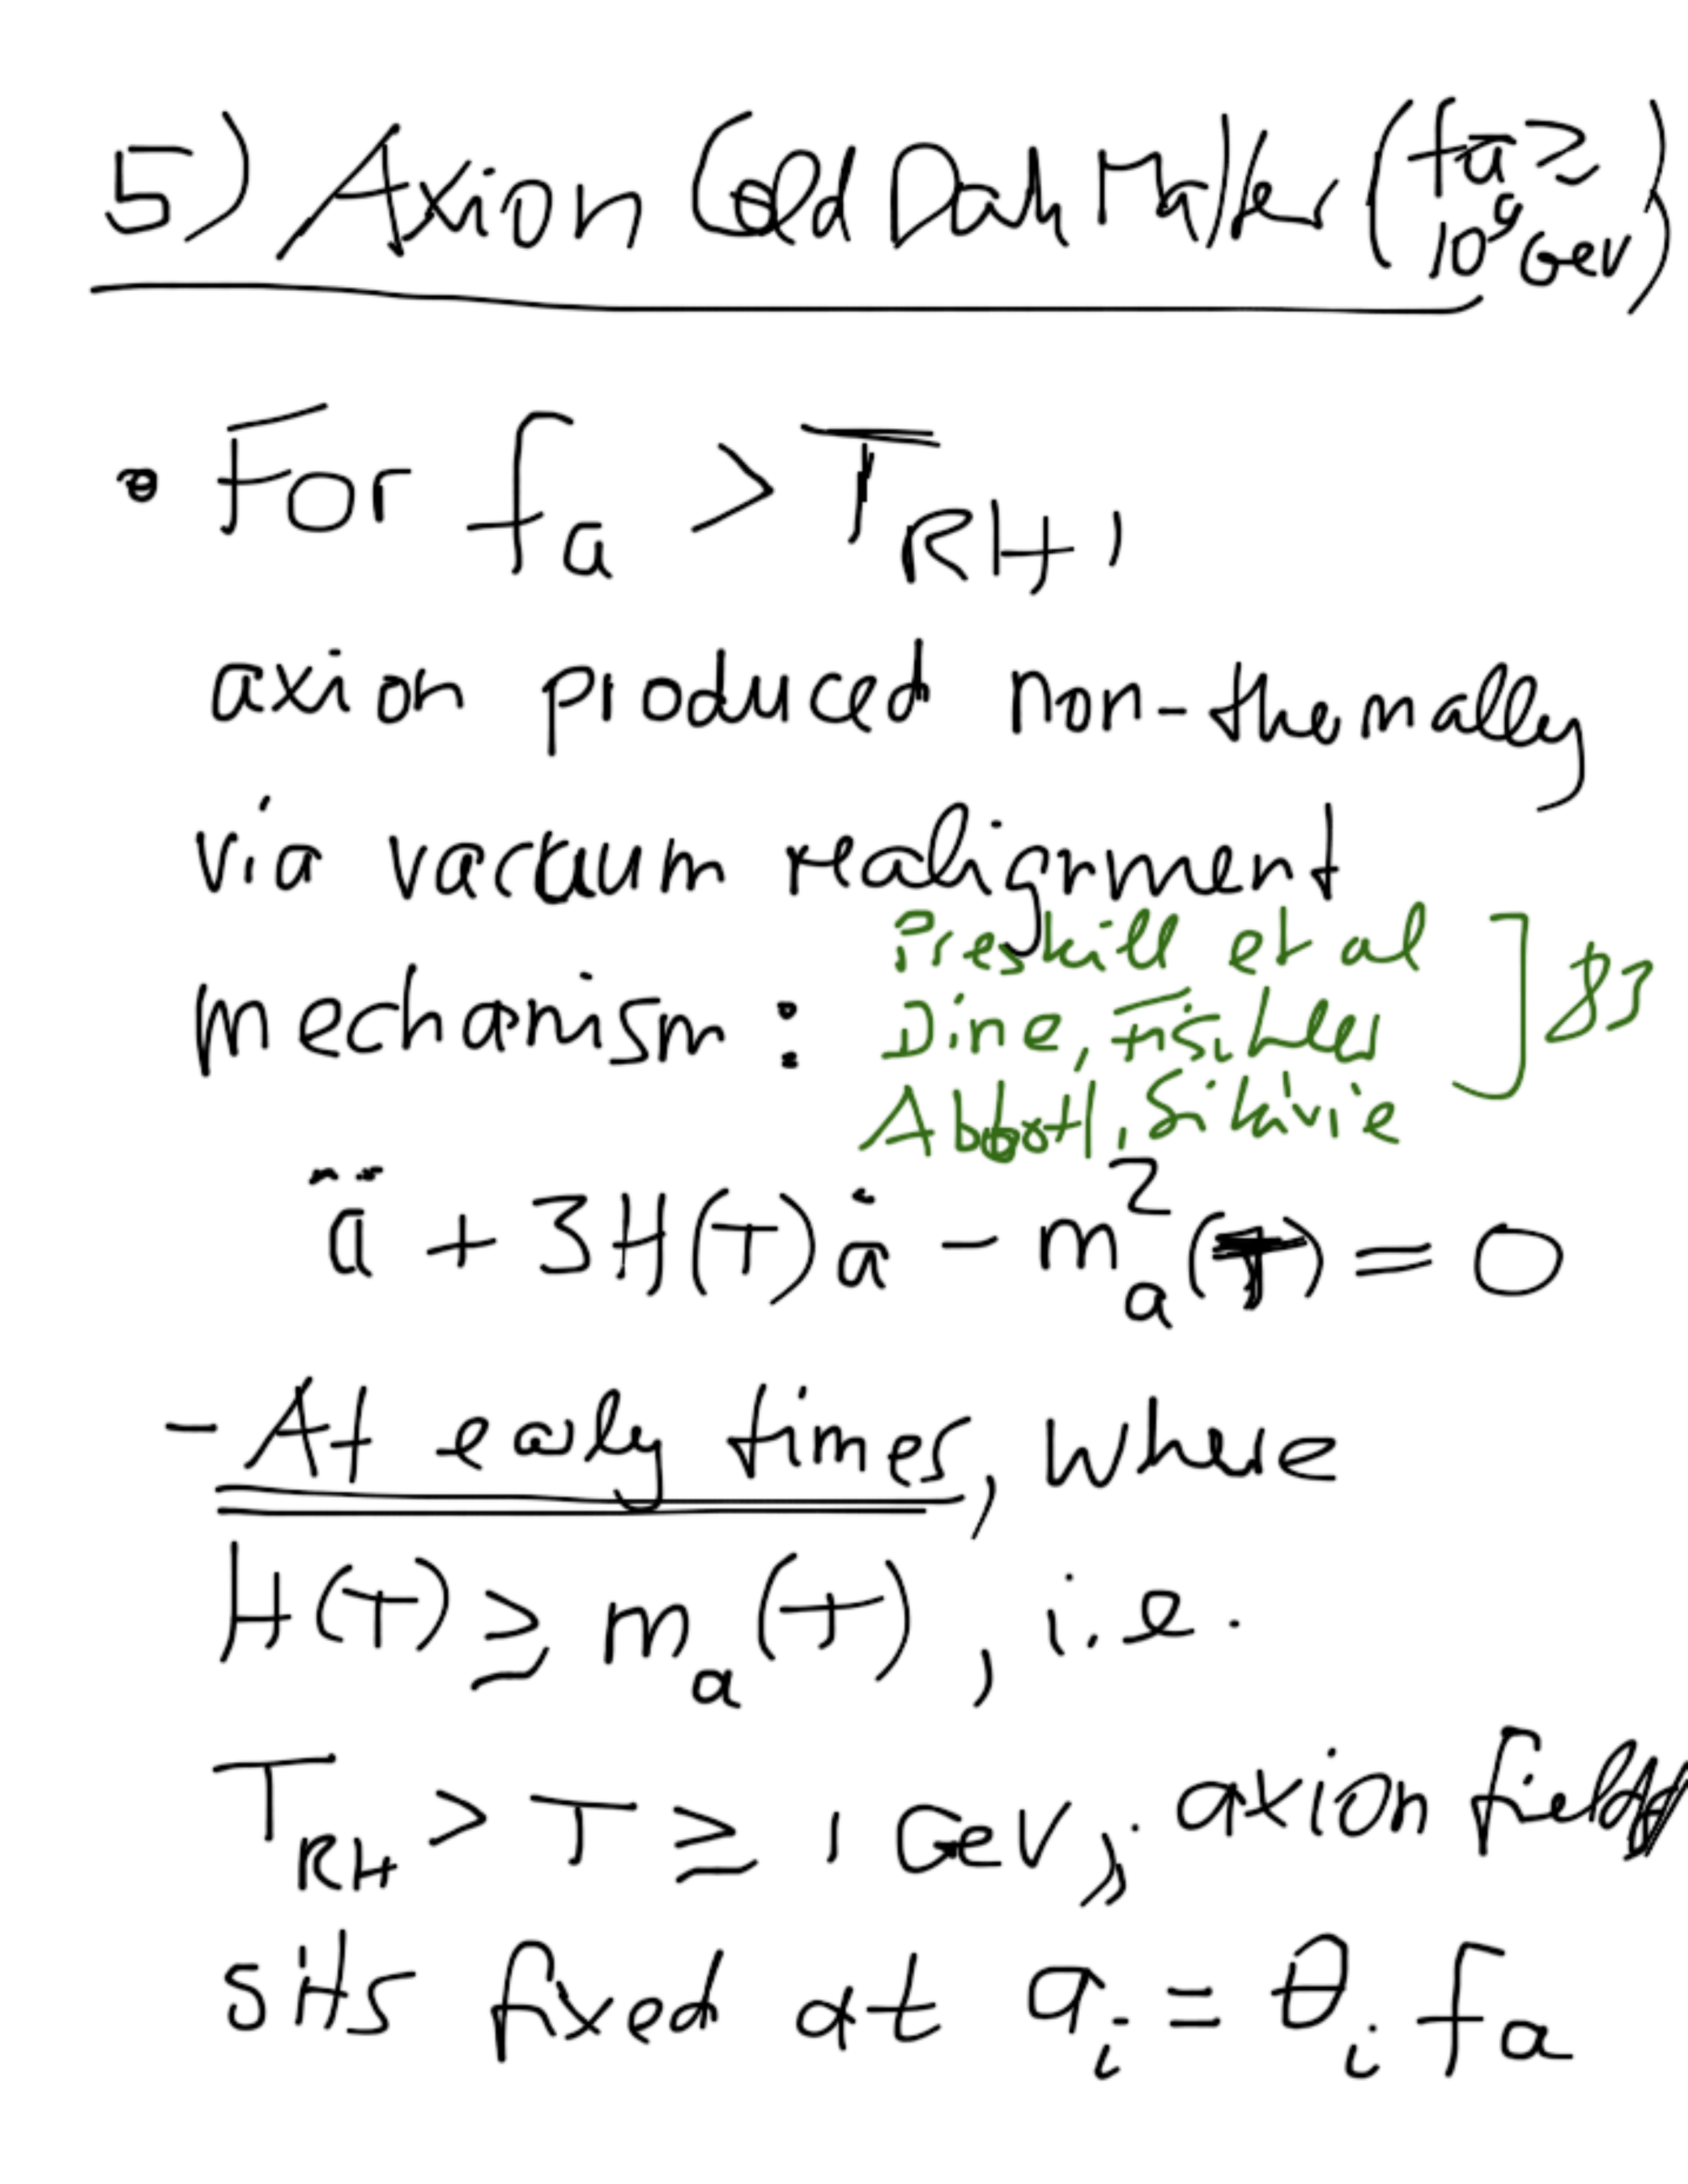 5) Axion Cold Dark Matter (fa ≥
10⁹ GeV)
• For fa > T_RH,
axion produced non-thermally
via vacuum realignment
mechanism :
Preskill et al
Dine, Fischler
Abbott, Sikivie
] 83
ä + 3H(T)ȧ − mₐ²(T) = 0
- At early times, where
H(T) ≥ mₐ(T), i.e.
T_RH > T ≥ 1 GeV, axion field
sits fixed at aᵢ = θᵢ fₐ